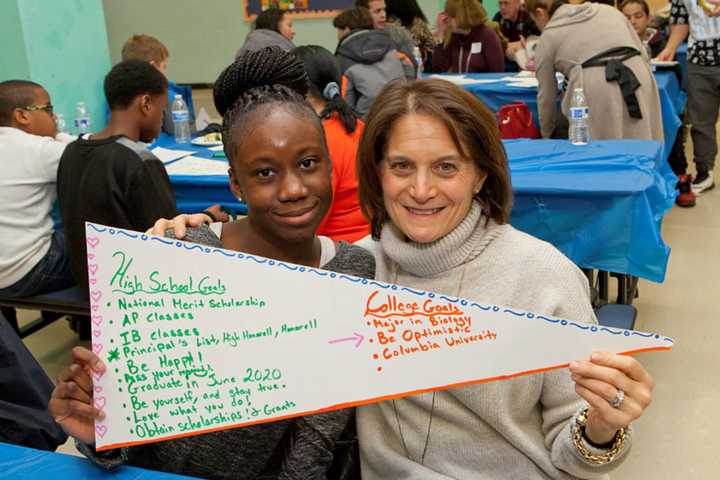 High School Goals
• National Merit Scholarship
• AP classes
• IB classes
Principal's List, High Honoroll, Honoroll
• Be Happy!!
• Graduate in June 2020
• Be yourself, and stay true.
• Love what you do!
• Obtain scholarships! & Grants
College Goals
• Major in Biology
• Be Optimistic
• Columbia University
•